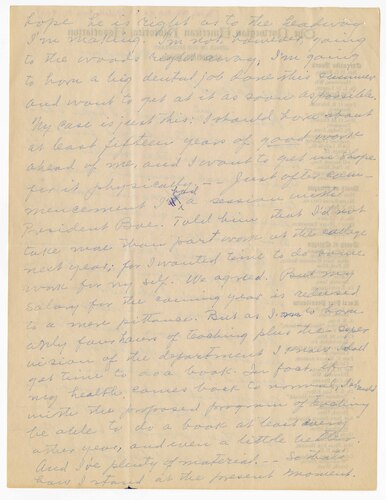 hope he is right as to the headway
I'm making. I'm not however going
to the woods right away. I'm going
to have a big dental job done this summer
and want to get at it as soon as possible.
My case is just this: I should have about
at least fifteen years of good work
ahead of me, and I want to get in shape
for it physically -- Just after com-
mencement I had a session with
President Boe. Told him that I'd not
take more than part work at the college
next year; for I wanted time to do some
work for my self. We agreed. But my
salary for the coming year is reduced
to a mere pittance. But as I am to have
only four hours of teaching plus the super
vision of the department I
get time to do a book. In fact if
my health comes back to normal, I should
with the proposed program of teaching
be able to do a book at least every
other year, and even a little better.
And I've plenty of material. -- So that's
how I stand at the present moment.